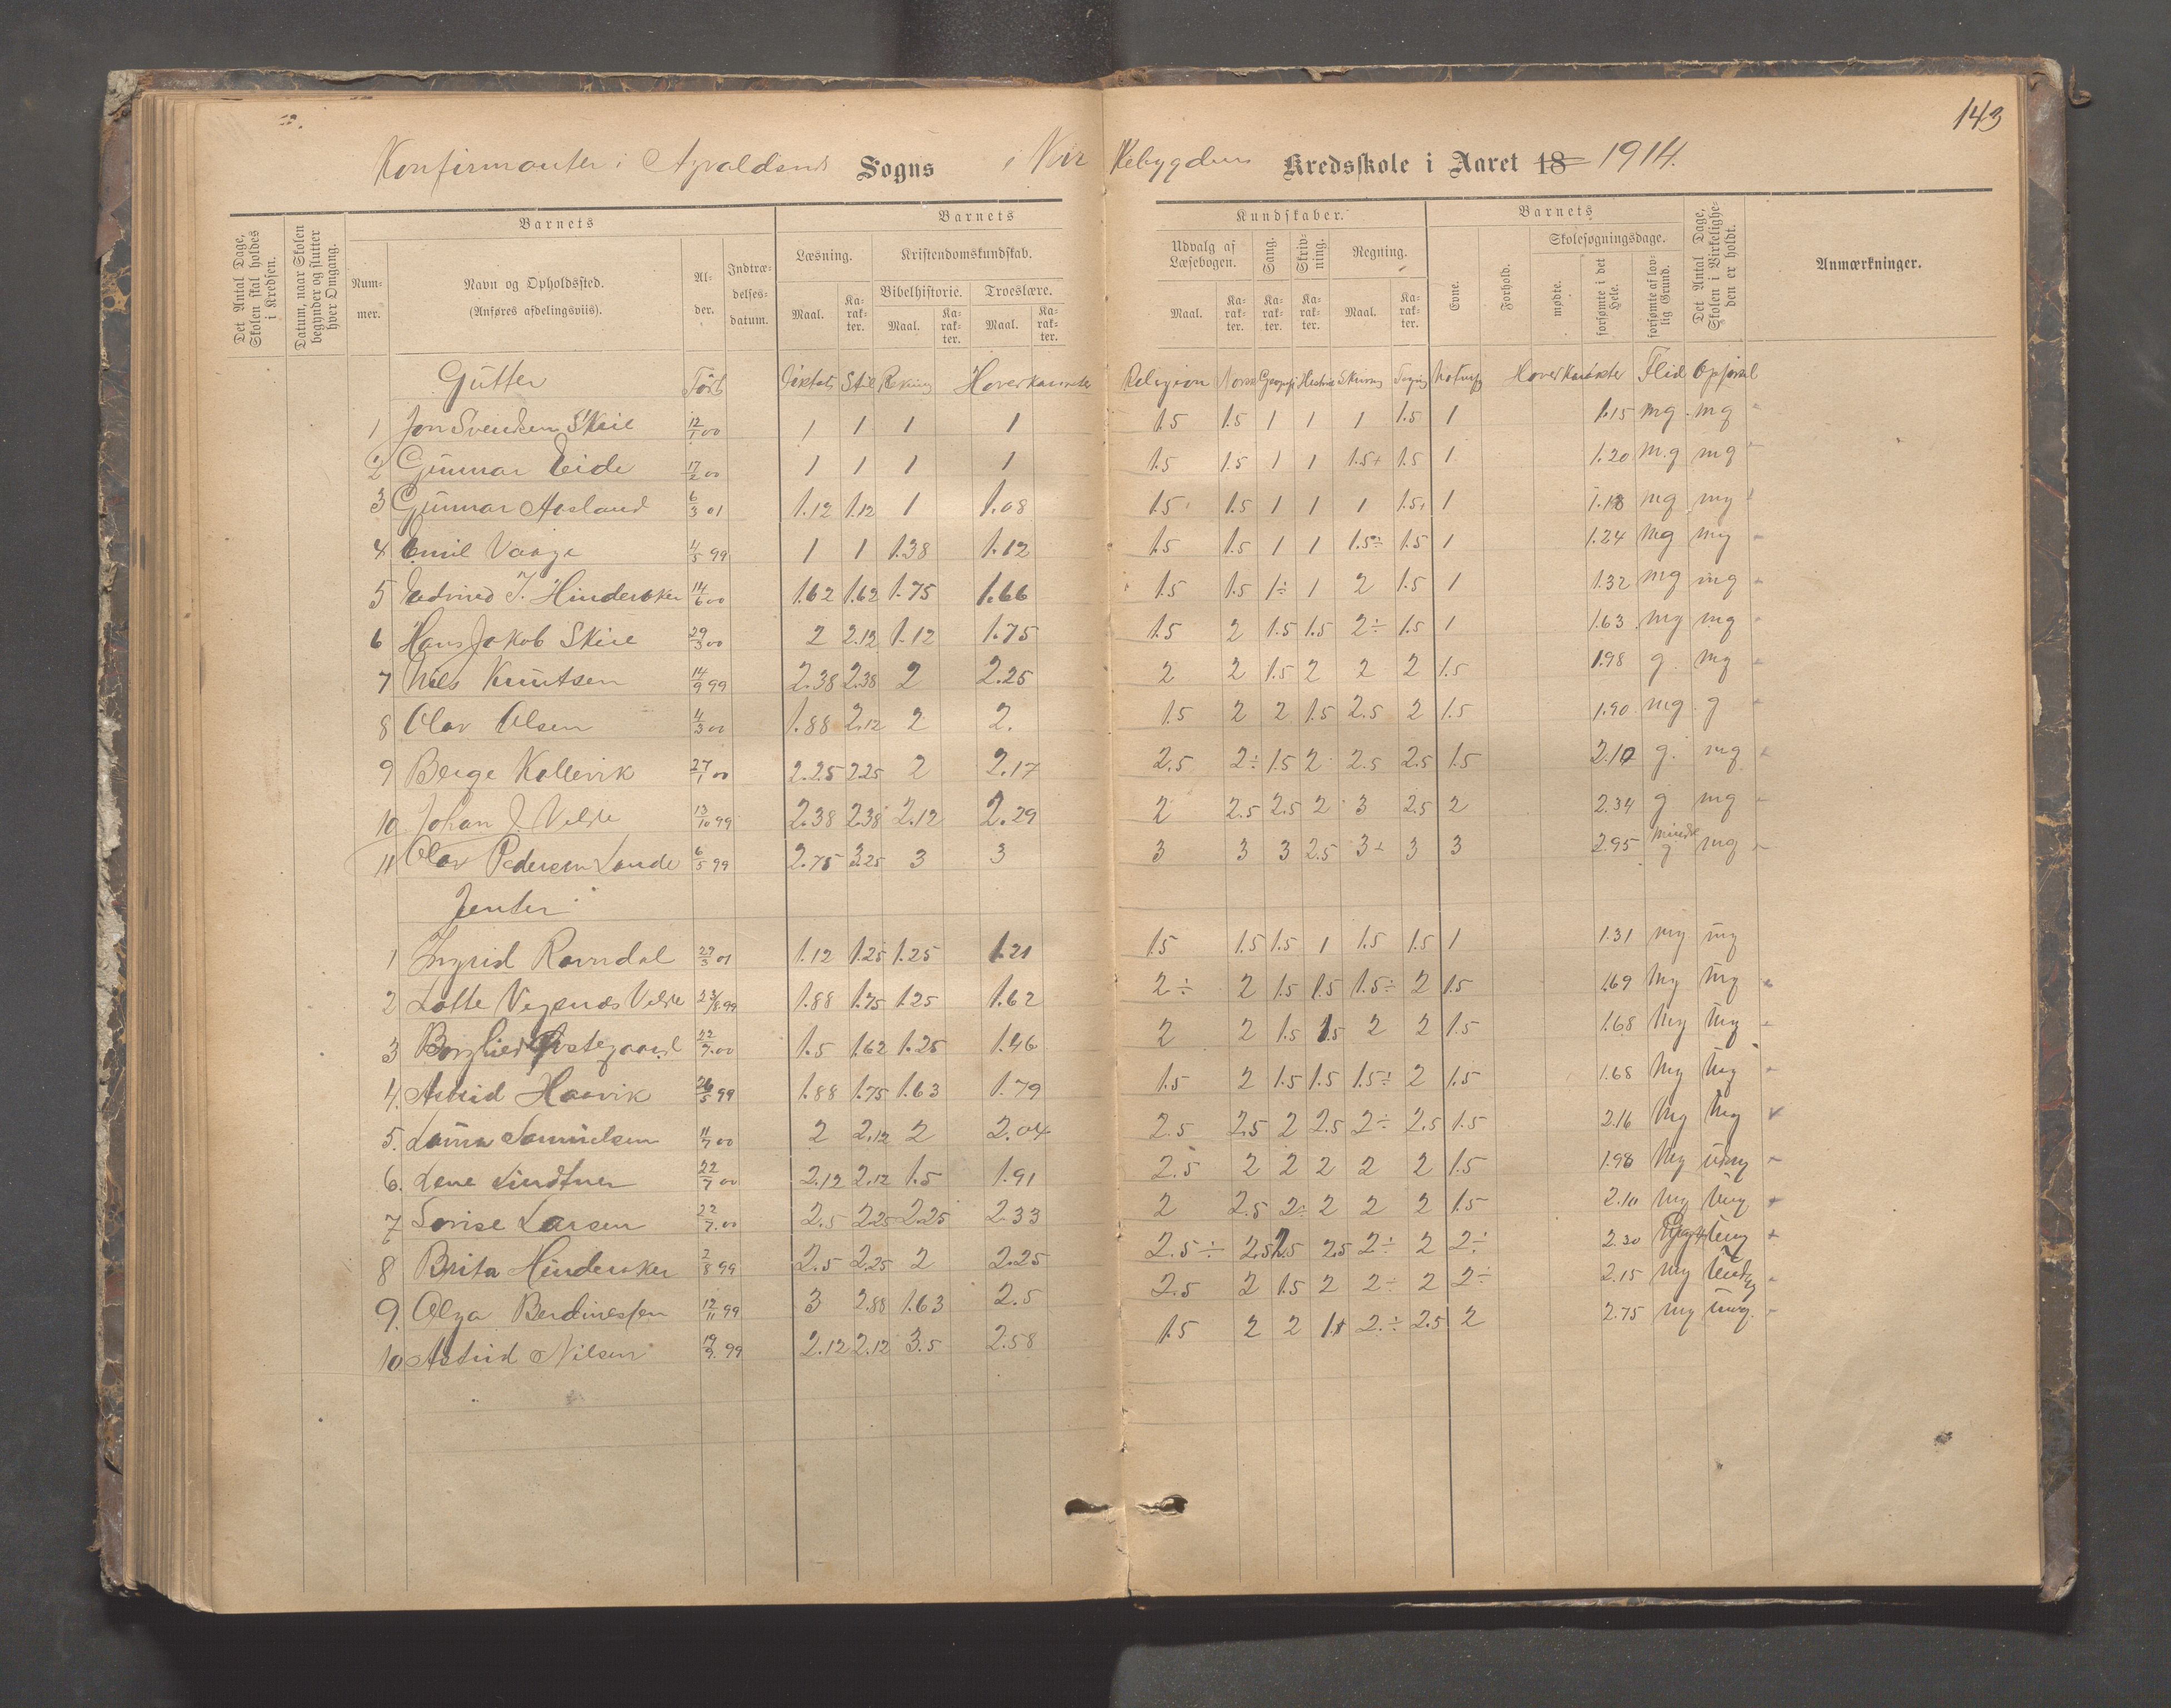 143
Konfirmanter i Avaldsnes Sogns i Nor Rebygdens Kredsskole i Aaret 18 1914.
Det Antal Dage, Skolen skal holdes i Kredsen.
Datum, naar Skolen begynder og slutter hver Omgang.
Barnets
Nummer.
Navn og Opholdssted. (Anføres afdelingsviis).
Alder.
Indtrædelsesdatum.
Barnets
Læsning.
Maal. Karakter.
Kristendomskundskab.
Bibelhistorie. Troeslære.
Maal. Karakter. Maal. Karakter.
Kundskaber.
Udvalg af Læsebogen. Sang. Skrivning. Regning.
Maal. Karakter. Karakter. Karakter. Maal. Karakter.
Barnets
Evne. Forhold.
Skolesøgningsdage.
mødte. forsømte i det Hele. forsømte af lovlig Grund.
Det Antal Dage, Skolen i Virkeligheden er holdt.
Anmærkninger.
Gutter Født Diktat Stil Rekning Hoverkarakter Religion Norsk Geografi Historie Skrivng Sogning Naturf Hoverkarakter Flid Opførsel
1 Jon Svendsen Skeie 12/1 00 1 1 1 1 1.5 1.5 1 1 1 1.5 1 1.15 mg mg
2 Gunnar Eide 17/2 00 1 1 1 1 1.5 1.5 1 1 1.5+ 1.5 1 1.20 m.g mg
3 Gunnar Aasland 6/3 01 1.12 1.12 1 1.08 1.5 1.5 1 1 1 1.5 1 1.18 mg mg
4 Emil Vaage 4/5 99 1 1 1.38 1.12 1.5 1.5 1 1 1.5÷ 1.5 1 1.24 mg mg
5 Edvind J. Hinderaker 14/6 00 1.62 1.62 1.75 1.66 1.5 1.5 1÷ 1 2 1.5 1 1.32 mg mg
6 Hans Jakob Skeie 29/3 00 2 2.12 1.12 1.75 1.5 2 1.5 1.5 2÷ 1.5 1 1.63 mg mg
7 Nils Knutsen 14/9 99 2.38 2.38 2 2.25 2 2 1.5 2 2 2 1.5 1.98 g. mg
8 Olav Olsen 4/3 00 1.88 2.12 2 2. 1.5 2 2 1.5 2.5 2 1.5 1.90 mg g
9 Berge Kallevik 27/1 00 2.25 2.25 2 2.17 2.5 2÷ 1.5 2 2.5 2.5 1.5 2.10 g. mg
10 Johan J. Velde 13/10 99 2.38 2.38 2.12 2.29 2 2.5 2.5 2 3 2.5 2 2.34 g mg
11 Olav Pedersen Lande 6/5 99 2.75 3.25 3 3 3 3 3 2.5 3÷ 3 3 2.95 mindre g mg
Jenter
1 Ingrid Ravndal 27/3 01 1.12 1.25 1.25 1.21 1.5 1.5 1.5 1 1.5 1.5 1 1.31 mg mg
2 Lotte Velde 23/8 99 1.88 1.75 1.25 1.62 2÷ 2 1.5 1.5 1.5÷ 2 1.5 1.69 mg mg
3 Borghild Østegaard 22/7.00 1.5 1.62 1.25 1.46 2 2 1.5 1.5 2 2 1.5 1.68 mg mg
4. Astrid Haavik 26/5 99 1.88 1.75 1.63 1.79 1.5 2 1.5 1.5 1.5÷ 2 1.5 1.68 mg mg
5. Laura Samuelsen 11/7 00 2 2.12 2 2.04 2.5 2.5 2 2.5 2÷ 2.5 1.5 2.16 mg mg
6. Lene Lindtner 22/7 00 2.12 2.12 1.5 1.91 2.5 2 2 2 2 2 1.5 1.98 mg mg
7 Lovise Larsen 22/7.00 2.5 2.25 2.25 2.33 2 2.5 2÷ 2 2 2 1.5 2.10 mg mg
8 Brita Hinderaker 2/8 99 2.5 2.25 2 2.25 2.5÷ 2.5 2.5 2.5 2÷ 2 2÷ 2.30 mg
9. Olga Berdinessen 12/11 99 3 2.88 1.63 2.5 2.5 2 1.5 2 2÷ 2 2÷ 2.15 mg
10. Astrid Nilsen 19/9. 99 2.12 2.12 3.5 2.58 1.5 2 2 2.÷ 2.5 2 2.75 mg